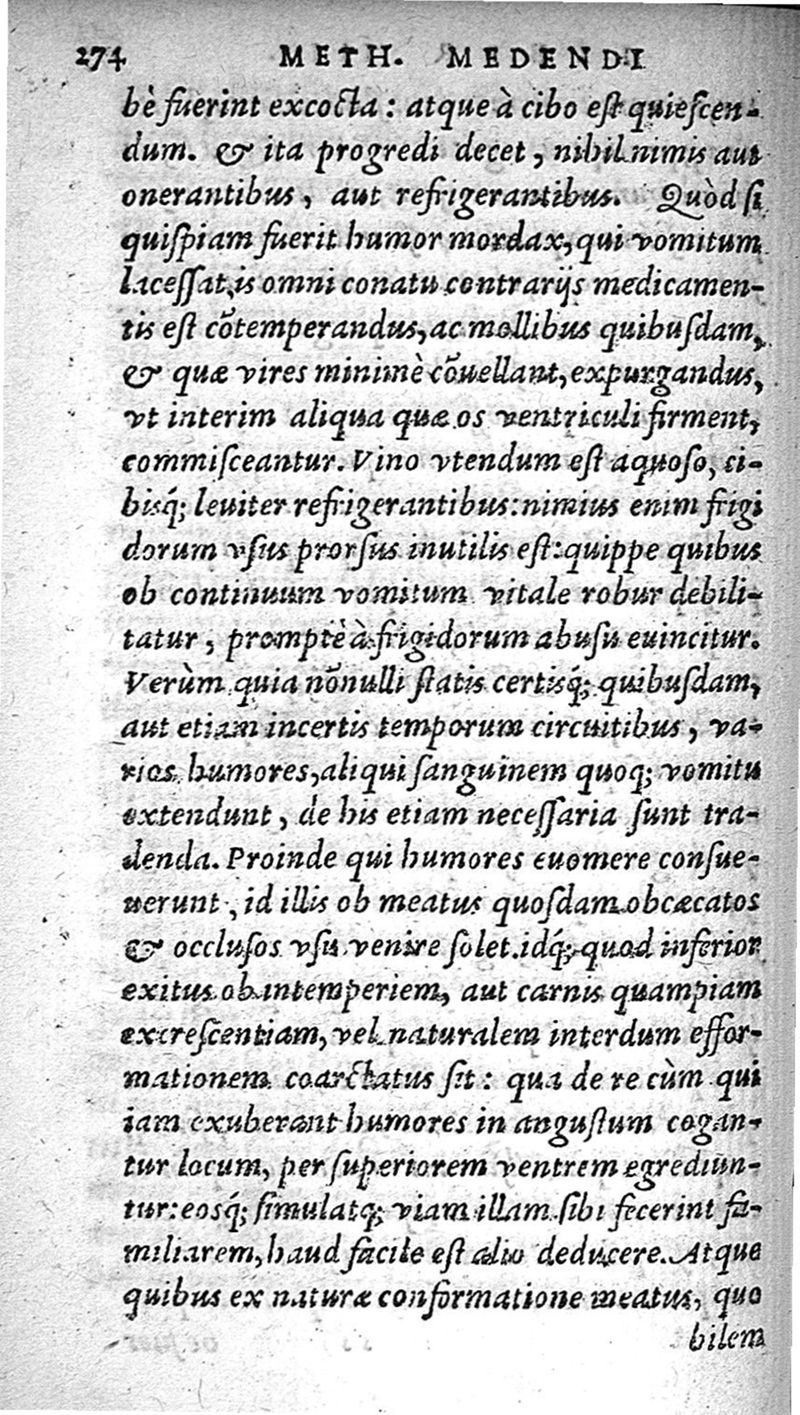 274 METH. MEDENDI
bè fuerint excocta : atque à cibo est quiescen-
dum. & ita progredi decet, nihil nimis aut
onerantibus, aut refrigerantibus. Quòd si
quispiam fuerit humor mordax, qui vomitum
lacessat, is omni conatu contrarijs medicamen-
tis est cōtemperandus, ac mollibus quibusdam,
& quæ vires minimè cōuellant, expurgandus,
vt interim aliqua quæ os ventriculi firment,
commisceantur. Vino vtendum est aquoso, ci-
bisq́; leuiter refrigerantibus: nimius enim frigi
dorum vsus prorsus inutilis est: quippe quibus
ob continuum vomitum vitale robur debili-
tatur, promptè à frigidorum abusu euincitur.
Verùm quia nōnulli statis certisq́; quibusdam,
aut etiam incertis temporum circuitibus, va-
rios humores, aliqui sanguinem quoq; vomitu
extendunt, de his etiam necessaria sunt tra-
denda. Proinde qui humores euomere consue-
uerunt, id illis ob meatus quosdam obcæcatos
& occlusos vsu venire solet. idq́; quod inferior
exitus ob intemperiem, aut carnis quampiam
excrescentiam, vel naturalem interdum effor-
mationem coarctatus sit : qua de re cùm qui
iam exuberant humores in angustum cogan-
tur locum, per superiorem ventrem egrediun-
tur: eosq́; simulatq; viam illam sibi fecerint fa-
miliarem, haud facile est alio deducere. Atque
quibus ex naturæ conformatione meatus, quo
bilem